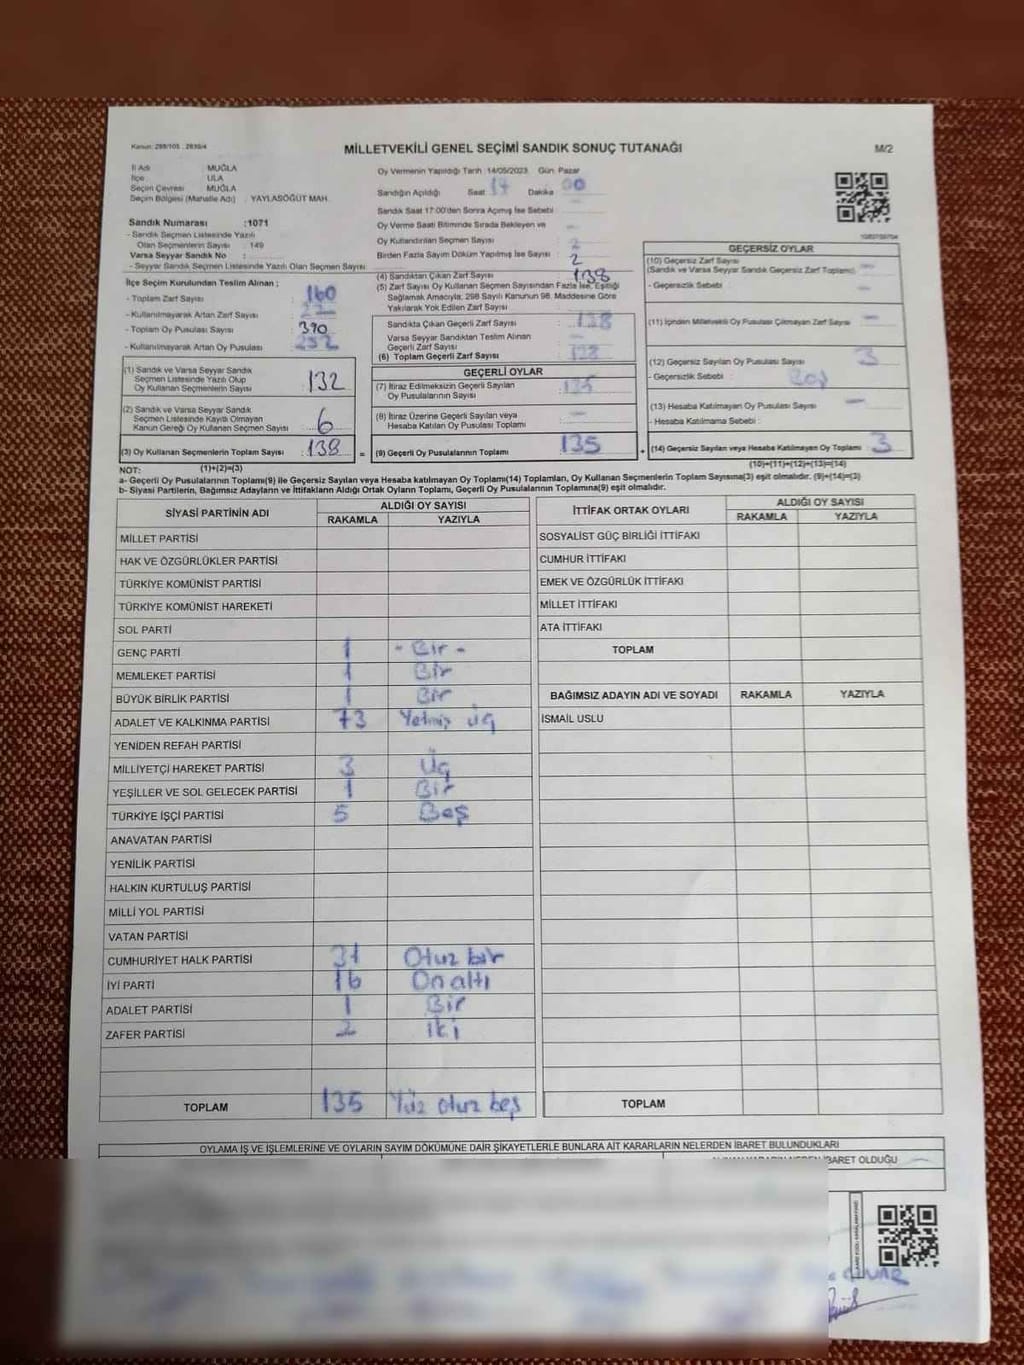 Kanun: 298/105 , 2839/4
MİLLETVEKİLİ GENEL SEÇİMİ SANDIK SONUÇ TUTANAĞI
M/2
İl Adı : MUĞLA
İlçe : ULA
Seçim Çevresi : MUĞLA
Seçim Bölgesi (Mahalle Adı) : YAYLASÖĞÜT MAH.
Sandık Numarası :1071
- Sandık Seçmen Listesinde Yazılı
Olan Seçmenlerin Sayısı : 149
Varsa Seyyar Sandık No :
- Seyyar Sandık Seçmen Listesinde Yazılı Olan Seçmen Sayısı
İlçe Seçim Kurulundan Teslim Alınan ;
- Toplam Zarf Sayısı : 160
- Kullanılmayarak Artan Zarf Sayısı : 22
- Toplam Oy Pusulası Sayısı : 390
- Kullanılmayarak Artan Oy Pusulası : 252
(1) Sandık ve Varsa Seyyar Sandık
Seçmen Listesinde Yazılı Olup
Oy Kullanan Seçmenlerin Sayısı 132
(2) Sandık ve Varsa Seyyar Sandık
Listesinde Kayıtlı Olmayan
Kanun Gereği Oy Kullanan Seçmen Sayısı 6
(3) Oy Kullanan Seçmenlerin Toplam Sayısı : 138 =
Oy Vermenin Yapıldığı Tarih :14/05/2023 Gün: Pazar
Sandığın Açıldığı Saat 17 Dakika 00
Sandık Saat 17:00'den Sonra Açılmış İse Sebebi :
Oy Verme Saati Bitiminde Sırada Bekleyen ve
Oy Kullandırılan Seçmen Sayısı :
Birden Fazla Sayım Döküm Yapılmış İse Sayısı : 2
(4) Sandıktan Çıkan Zarf Sayısı : 138
(5) Zarf Sayısı Oy Kullanan Seçmen Sayısından Fazla İse, Eşitliği
Sağlamak Amacıyla, 298 Sayılı Kanunun 98. Maddesine Göre
Yakılarak Yok Edilen Zarf Sayısı :
Sandıkta Çıkan Geçerli Zarf Sayısı : 138
Varsa Seyyar Sandıktan Teslim Alınan
Geçerli Zarf Sayısı
(6) Toplam Geçerli Zarf Sayısı : 138
GEÇERLİ OYLAR
(7) İtiraz Edilmeksizin Geçerli Sayılan
Oy Pusulalarının Sayısı : 135
(8) İtiraz Üzerine Geçerli Sayılan veya
Hesaba Katılan Oy Pusulası Toplamı
(9) Geçerli Oy Pusulalarının Toplamı : 135 +
GEÇERSİZ OYLAR
(10) Geçersiz Zarf Sayısı
(Sandık ve Varsa Seyyar Sandık Geçersiz Zarf Toplamı)
- Geçersizlik Sebebi :
(11) İçinden Milletvekili Oy Pusulası Çıkmayan Zarf Sayısı
(12) Geçersiz Sayılan Oy Pusulası Sayısı : 3
- Geçersizlik Sebebi :
(13) Hesaba Katılmayan Oy Pusulası Sayısı :
- Hesaba Katılmama Sebebi :
(14) Geçersiz Sayılan veya Hesaba Katılmayan Oy Toplamı : 3
NOT: (1)+(2)=(3) (10)+(11)+(12)+(13)=(14)
a- Geçerli Oy Pusulalarının Toplamı(9) ile Geçersiz Sayılan veya Hesaba katılmayan Oy Toplamı(14) Toplamları, Oy Kullanan Seçmenlerin Toplam Sayısına(3) eşit olmalıdır. (9)+(14)=(3)
b- Siyasi Partilerin, Bağımsız Adayların ve İttifakların Aldığı Ortak Oyların Toplamı, Geçerli Oy Pusulalarının Toplamına(9) eşit olmalıdır.
SİYASİ PARTİNİN ADI ALDIĞI OY SAYISI
RAKAMLA YAZIYLA
MİLLET PARTİSİ
HAK VE ÖZGÜRLÜKLER PARTİSİ
TÜRKİYE KOMÜNİST PARTİSİ
TÜRKİYE KOMÜNİST HAREKETİ
SOL PARTİ
GENÇ PARTİ 1 - Bir -
MEMLEKET PARTİSİ 1 Bir
BÜYÜK BİRLİK PARTİSİ 1 Bir
ADALET VE KALKINMA PARTİSİ 73 Yetmiş üç
YENİDEN REFAH PARTİSİ
MİLLİYETÇİ HAREKET PARTİSİ 3 Üç
YEŞİLLER VE SOL GELECEK PARTİSİ 1 Bir
TÜRKİYE İŞÇİ PARTİSİ 5 Beş
ANAVATAN PARTİSİ
YENİLİK PARTİSİ
HALKIN KURTULUŞ PARTİSİ
MİLLİ YOL PARTİSİ
VATAN PARTİSİ
CUMHURİYET HALK PARTİSİ 31 Otuz bir
İYİ PARTİ 16 On altı
ADALET PARTİSİ 1 Bir
ZAFER PARTİSİ 2 iki
TOPLAM 135 Yüz otuz beş
İTTİFAK ORTAK OYLARI ALDIĞI OY SAYISI
RAKAMLA YAZIYLA
SOSYALİST GÜÇ BİRLİĞİ İTTİFAKI
CUMHUR İTTİFAKI
EMEK VE ÖZGÜRLÜK İTTİFAKI
MİLLET İTTİFAKI
ATA İTTİFAKI
TOPLAM
BAĞIMSIZ ADAYIN ADI VE SOYADI RAKAMLA YAZIYLA
İSMAİL USLU
TOPLAM
OYLAMA İŞ VE İŞLEMLERİNE VE OYLARIN SAYIM DÖKÜMÜNE DAİR ŞİKAYETLERLE BUNLARA AİT KARARLARIN NELERDEN İBARET BULUNDUKLARI
İBARET OLDUĞU